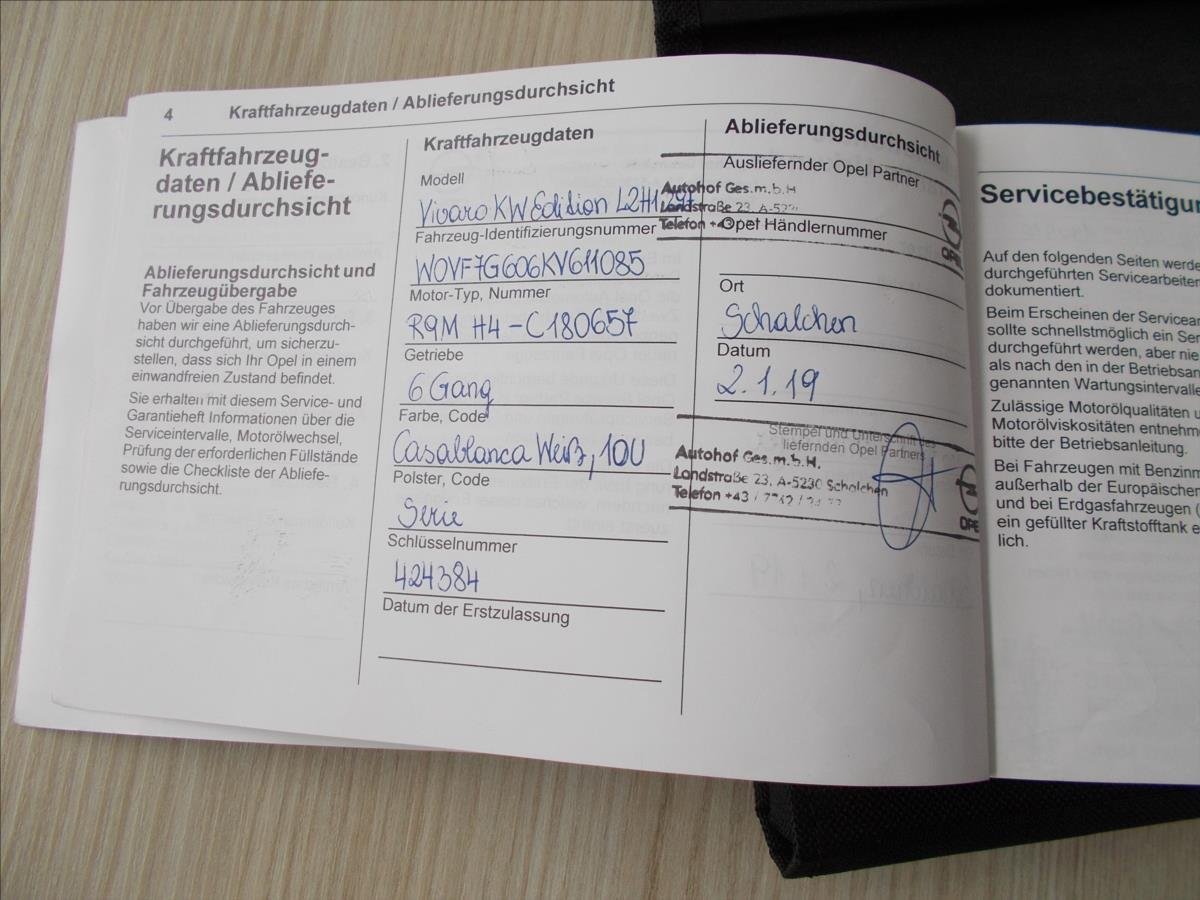 4
Kraftfahrzeugdaten / Ablieferungsdurchsicht
Kraftfahrzeug-
daten / Abliefe-
rungsdurchsicht
Ablieferungsdurchsicht und
Fahrzeugübergabe
Vor Übergabe des Fahrzeuges
haben wir eine Ablieferungsdurch-
sicht durchgeführt, um sicherzu-
stellen, dass sich Ihr Opel in einem
einwandfreien Zustand befindet.
Sie erhalten mit diesem Service- und
Garantieheft Informationen über die
Serviceintervalle, Motorölwechsel,
Prüfung der erforderlichen Füllstände
sowie die Checkliste der Abliefe-
rungsdurchsicht.
Kraftfahrzeugdaten
Modell
Vivaro KW Edition L2H1
Fahrzeug-Identifizierungsnummer
W0VF7G606KV611085
Motor-Typ, Nummer
R9M H4 - C180657
Getriebe
6 Gang
Farbe, Code
Casablanca Weiß, 10U
Polster, Code
Serie
Schlüsselnummer
424384
Datum der Erstzulassung
Ablieferungsdurchsicht
Ausliefernder Opel Partner
Autohof Ges.m.b.H
Landstraße 23, A-523
Telefon +43
Opel Händlernummer
OPEL
Ort
Schalchen
Datum
2.1.19
Stempel und Unterschrift des
liefernden Opel Partners
Autohof Ges.m.b.H.
Landstraße 23, A-5230 Schalchen
Telefon +43 /
OPE
Servicebestätigun
Auf den folgenden Seiten werde
durchgeführten Servicearbeiten
dokumentiert.
Beim Erscheinen der Servicean
sollte schnellstmöglich ein Ser
durchgeführt werden, aber nie
als nach den in der Betriebsan
genannten Wartungsintervalle
Zulässige Motorölqualitäten u
Motorölviskositäten entnehme
bitte der Betriebsanleitung.
Bei Fahrzeugen mit Benzinm
außerhalb der Europäischen
und bei Erdgasfahrzeugen (
ein gefüllter Kraftstofftank e
lich.